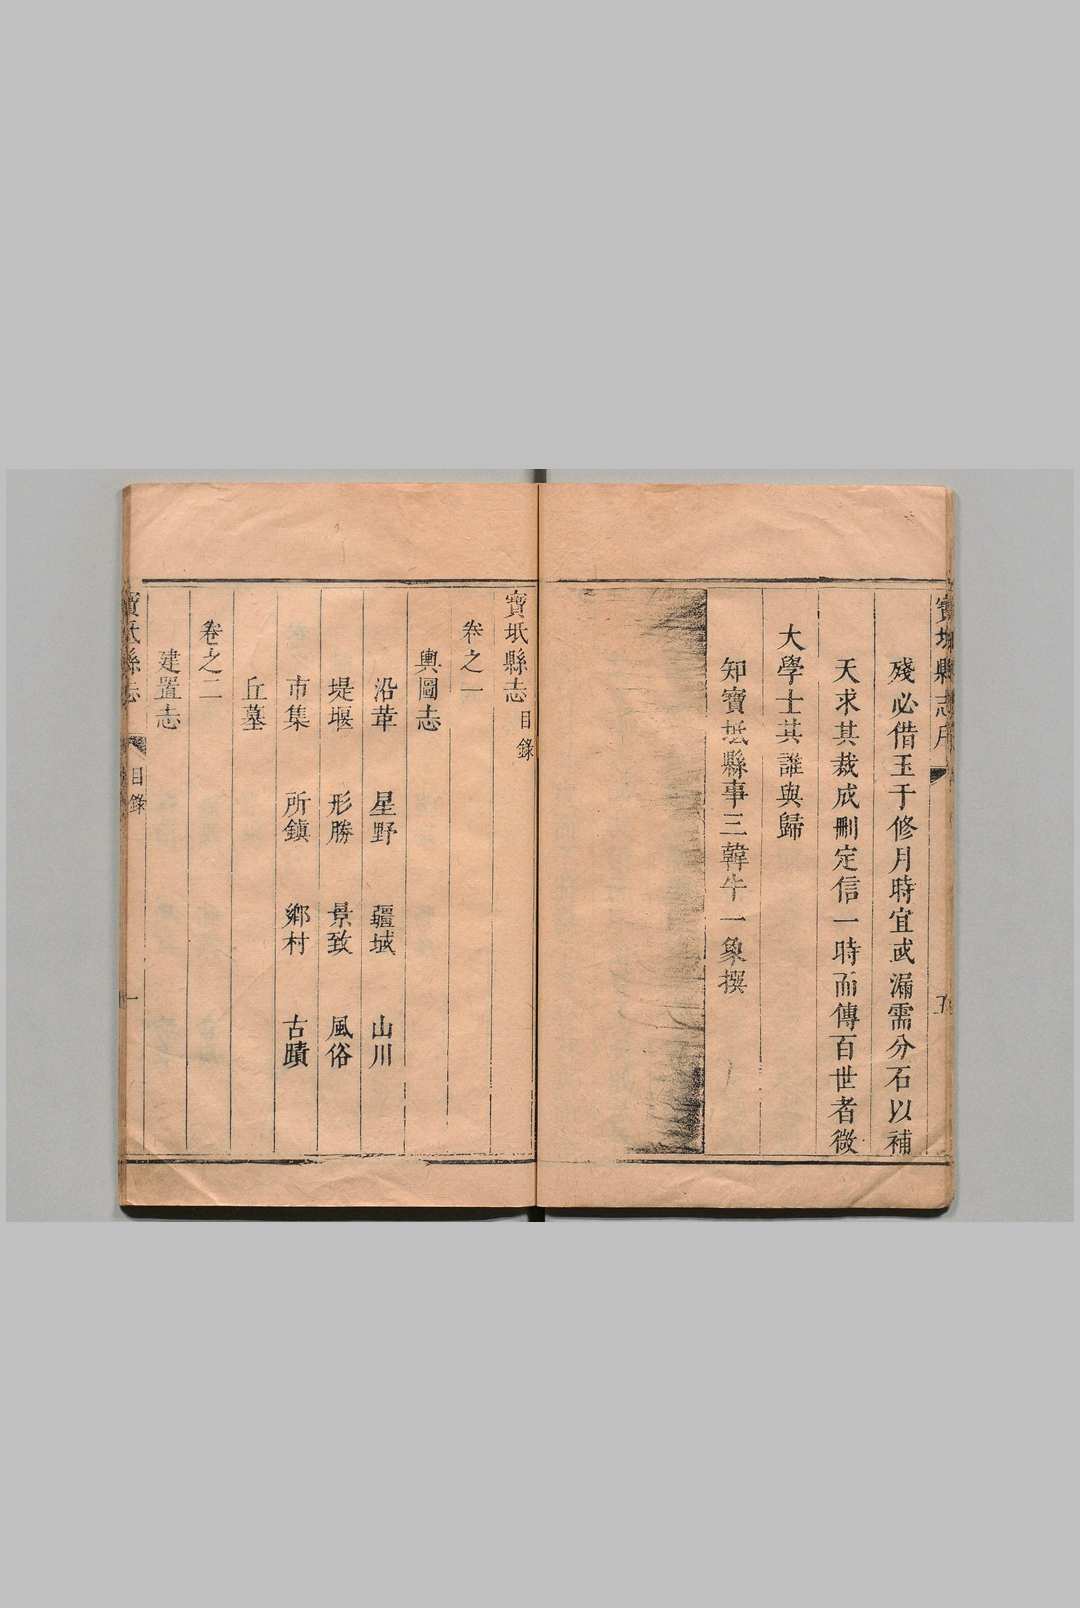 寶坻縣志序
殘必借玉于修月時宜或漏需分石以補
天求其裁成刪定信一時而傳百世者微
大學士其誰與歸
知寶坻縣事三韓牛一象撰
寶坻縣志目錄
卷之一
輿圖志
沿革 星野 疆域 山川
堤堰 形勝 景致 風俗
市集 所鎮 鄉村 古蹟
丘墓
卷之二
建置志
寶坻縣志 目錄 一